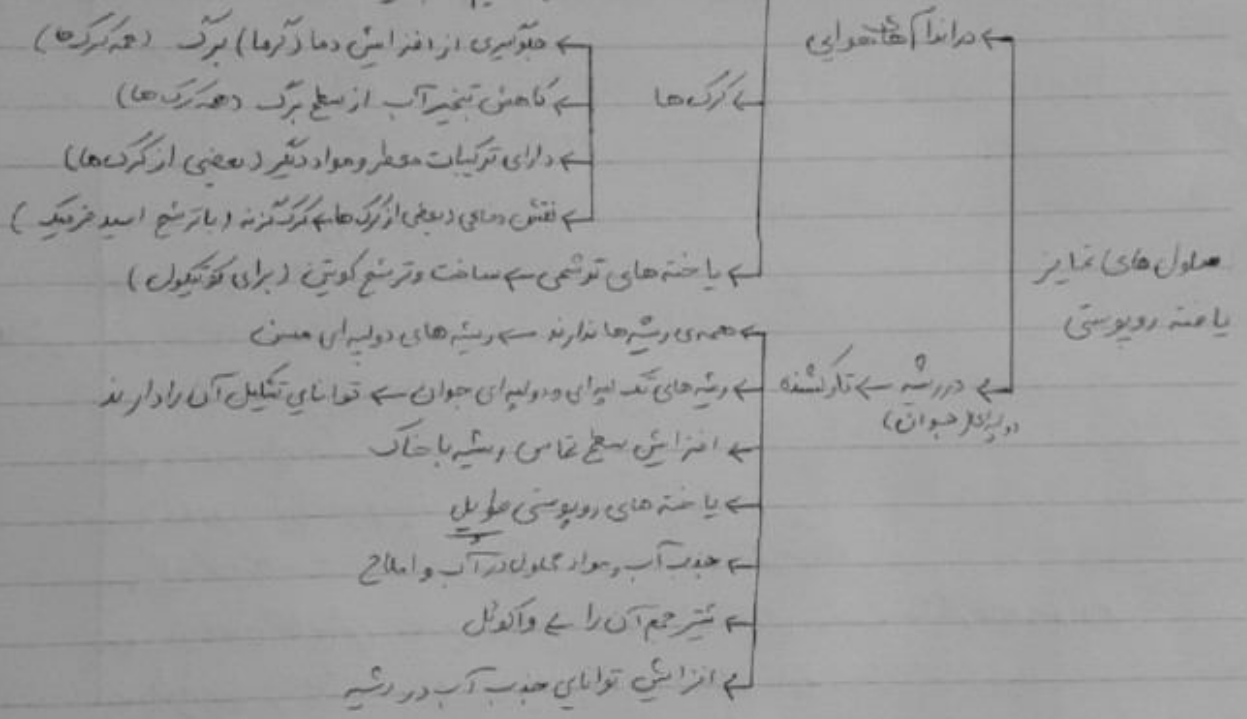 ← در اندام های هوایی
← کرک ها
← جلوگیری از افزایش دما (گرما) برگ (همه کرک ها)
← کاهش تبخیر آب از سطح برگ (همه کرک ها)
← دارای ترکیبات معطر و مواد دیگر (بعضی از کرک ها)
← نقش دفاعی (بعضی از کرک ها ← کرک گزنه (با ترشح اسید فرمیک)
← یاخته های ترشحی ← ساخت و ترشح کوتین (برای کوتیکول)
سلول های تمایز
یافته روپوستی
← در ریشه ← تار کشنده
دولپه ای (جوان)
← همه ی ریشه ها ندارند ← ریشه های دولپه ای مسن
← ریشه های تک لپه ای و دولپه ای جوان ← توانایی تشکیل آن را دارند
← افزایش سطح تماس ریشه با خاک
← یاخته های روپوستی طویل
← جذب آب و مواد محلول در آب و املاح
← بیشتر حجم آن را ← واکوئل
← افزایش توانایی جذب آب در ریشه